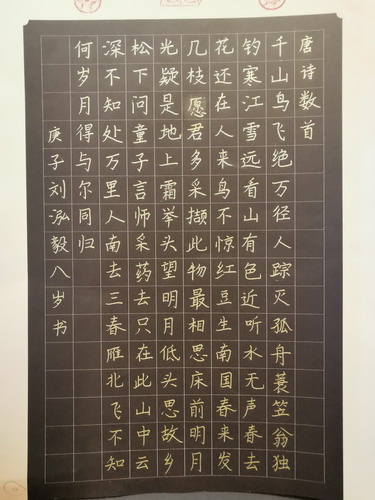 唐诗数首
千山鸟飞绝万径人踪灭孤舟蓑笠翁独
钓寒江雪远看山有色近听水无声春去
花还在人来鸟不惊红豆生南国春来发
几枝愿君多采撷此物最相思床前明月
光疑是地上霜举头望明月低头思故乡
松下问童子言师采药去只在此山中云
深不知处万里人南去三春雁北飞不知
何岁月得与尔同归
庚子刘泓毅八岁书